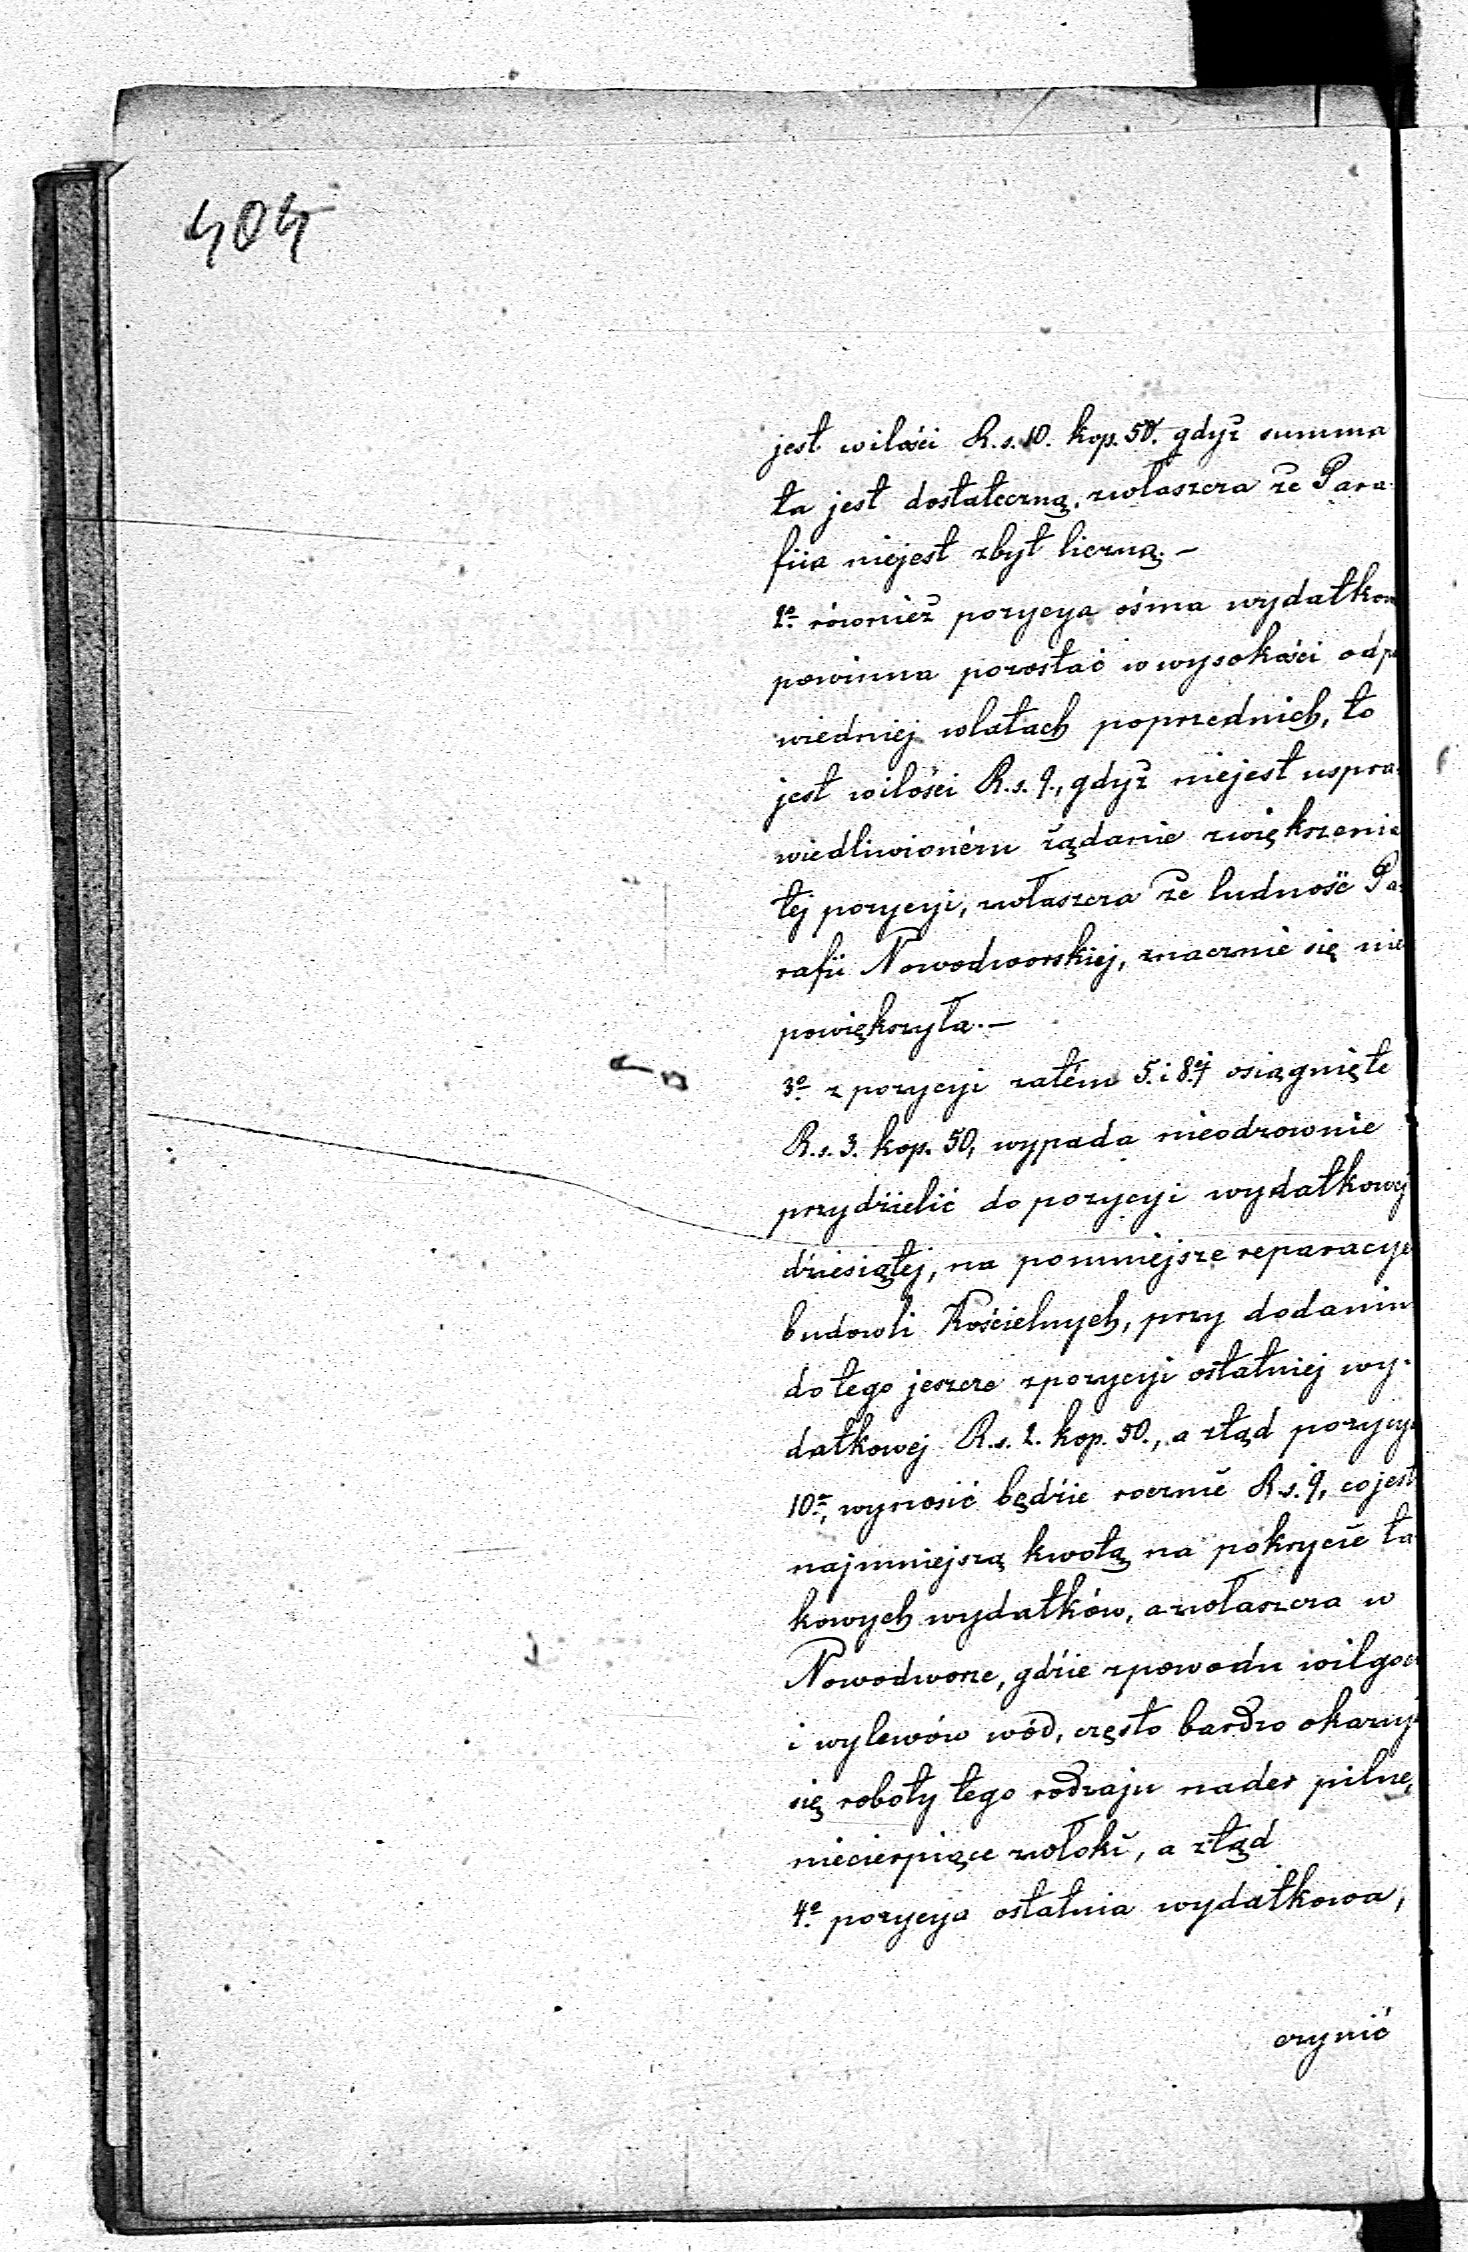 404
jest wilości R.s. 10. kop. 50. gdyż summa
ta jest dostateczną, zwłaszcza że Para
fiia niejest zbyt liczną. —
2º również pozycya ósma wydatkow
powinna pozostać w wysokości odpo
wiedniej wlatach poprzednich, to
jest wilości R.s. 9., gdyż niejest uspra-
wiedliwioném żądanie zwiększenia
tej pozycyi, zwłaszcza że ludność Pa-
rafii Nowodworskiej, znacznie się nie
powiększyła. —
3º z pozycyi zatém 5. i 8.ej osiągnięte
R.s. 3. kop. 50, wypada nieodzownie
przydzielić do pozycyi wydatkowej
dziesiątej, na pomniejsze reparacye
budowli Kościelnych, przy dodaniu
do tego jeszcze zpozycyi ostatniej wy-
datkowej R.s. 2. kop. 50., a ztąd pozycya
10ª, wynosić będzie rocznie R.s. 9, co jest
najmniejszą kwotą na pokrycie ta
kowych wydatków, a zwłaszcza w
Nowodworze, gdzie zpowodu wilgoci
i wylewów wód, często bardzo okazują
się roboty tego rodzaju nader pilne,
niecierpiące zwłoki, a ztąd
4º pozycya ostatnia wydatkowa,
czynić